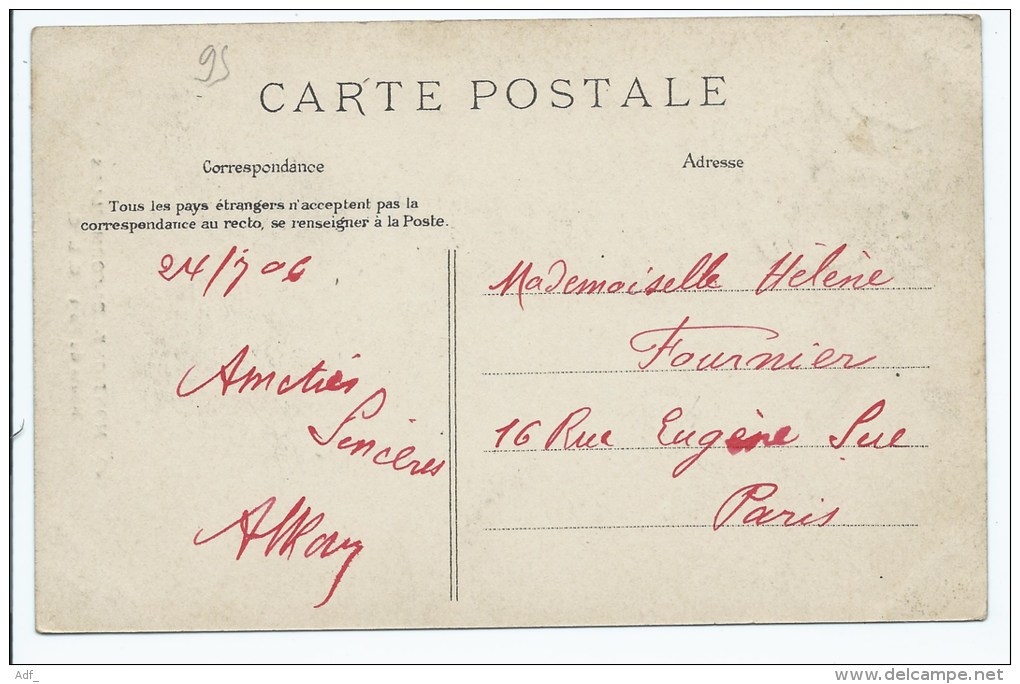 95
CARTE POSTALE
Correspondance
Tous les pays étrangers n'acceptent pas la
correspondance au recto, se renseigner à la Poste.
24/7 06
Amitiés
Sincères
Adresse
Mademoiselle Hélène
Fournier
16 Rue Eugène Sue
Paris
Adf_
www.delcampe.net